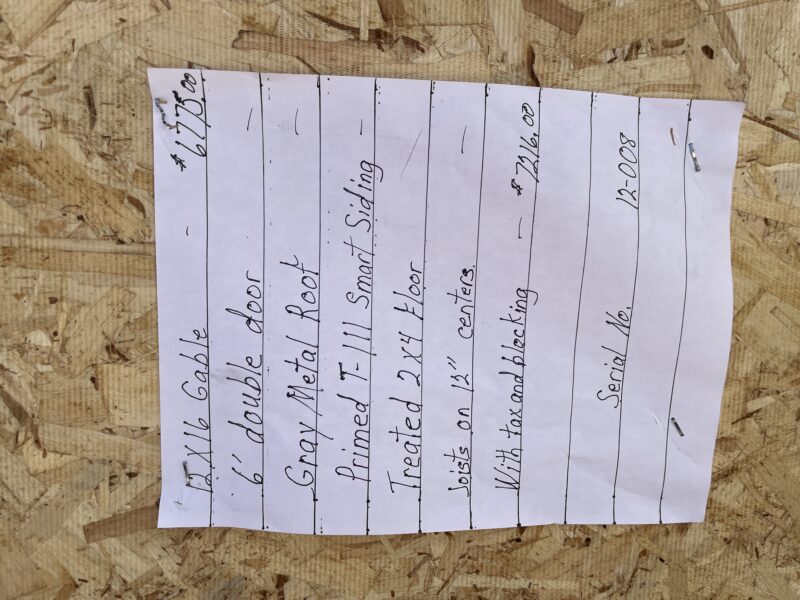 12X16 Gable - $6775.00
6' double door -
Gray Metal Roof -
Primed T-111 Smart Siding -
Treated 2X4 Floor -
Joists on 12" centers. -
With tax and blocking - $7216.00
Serial No. 12-008